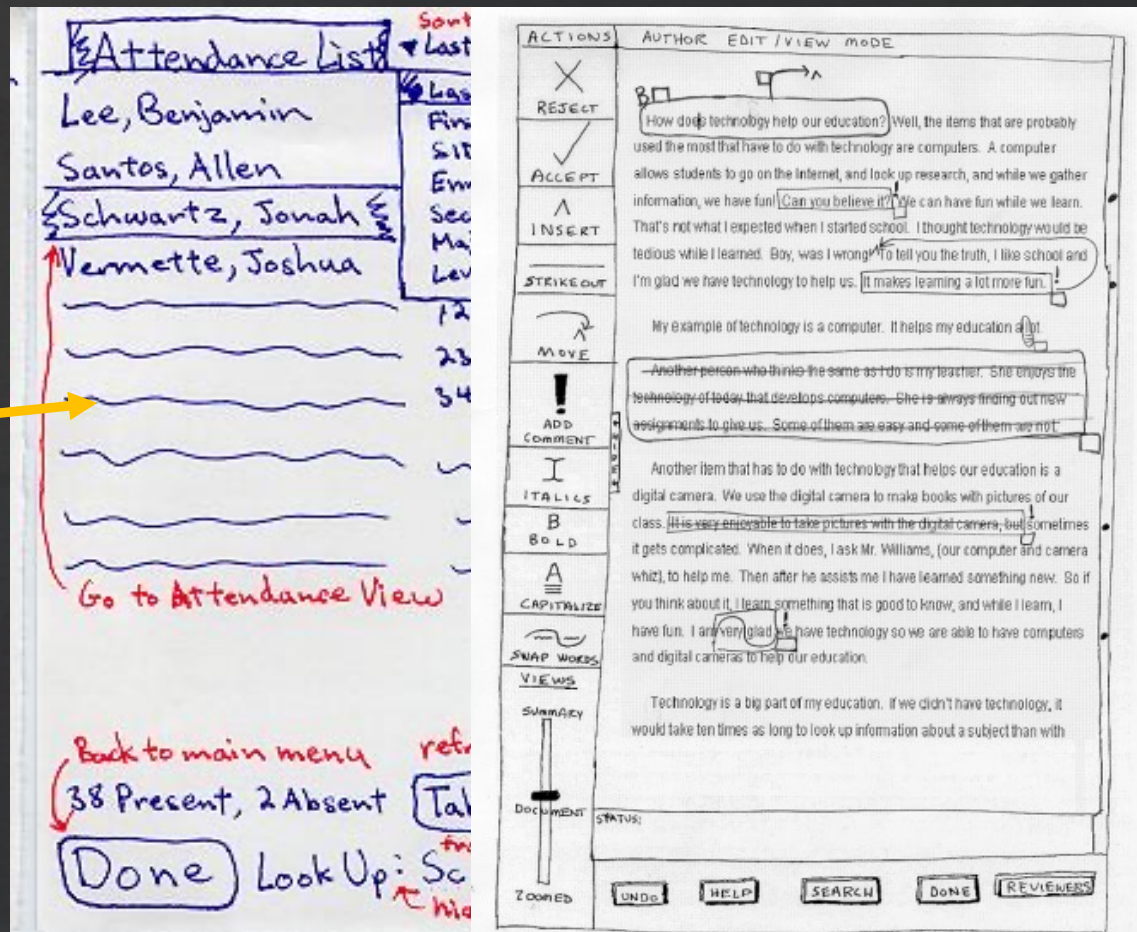 Sort
Attendance List
Last
Lee, Benjamin
Santos, Allen
Schwartz, Jonah
Vermette, Joshua
12
23
34
Go to Attendance View
Back to main menu
38 Present, 2 Absent
Done
Look Up:
ACTIONS
REJECT
ACCEPT
INSERT
STRIKEOUT
MOVE
ADD
COMMENT
ITALICS
B
BOLD
A
CAPITALIZE
SWAP WORDS
VIEWS
SUMMARY
DOCUMENT
ZOOMED
AUTHOR EDIT / VIEW MODE
B
How does technology help our education? Well, the items that are probably
used the most that have to do with technology are computers. A computer
allows students to go on the Internet, and look up research, and while we gather
information, we have fun! Can you believe it? We can have fun while we learn.
That's not what I expected when I started school. I thought technology would be
tedious while I learned. Boy, was I wrong! To tell you the truth, I like school and
I'm glad we have technology to help us. It makes learning a lot more fun.
My example of technology is a computer. It helps my education a lot.
Another person who thinks the same as I do is my teacher. She enjoys the
technology of today that develops computers. She is always finding out new
assignments to give us. Some of them are easy and some of them are not.
HIDE
Another item that has to do with technology that helps our education is a
digital camera. We use the digital camera to make books with pictures of our
class. It is very enjoyable to take pictures with the digital camera, but sometimes
it gets complicated. When it does, I ask Mr. Williams, (our computer and camera
whiz), to help me. Then after he assists me I have learned something new. So if
you think about it, I learn something that is good to know, and while I learn, I
have fun. I am very glad we have technology so we are able to have computers
and digital cameras to help our education.
Technology is a big part of my education. If we didn't have technology, it
would take ten times as long to look up information about a subject than with
STATUS:
UNDO HELP SEARCH DONE REVIEWERS